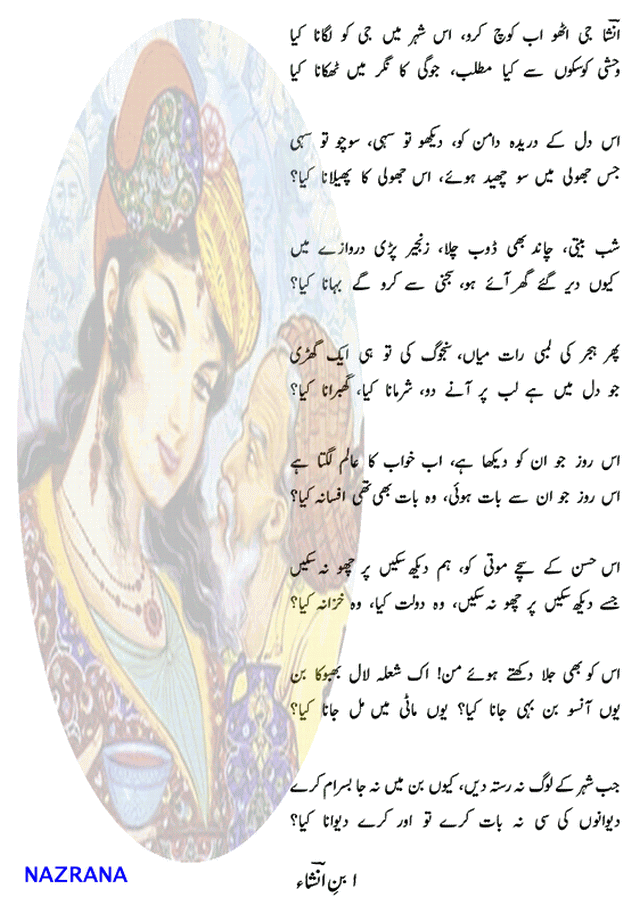 انشا جی اٹھو اب کوچ کرو، اس شہر میں جی کو لگانا کیا
وحشی کو سکوں سے کیا مطلب، جوگی کا نگر میں ٹھکانا کیا
اس دل کے دریدہ دامن کو، دیکھو تو سہی، سوچو تو سہی
جس جھولی میں سو چھید ہوئے، اس جھولی کا پھیلانا کیا؟
شب بیتی، چاند بھی ڈوب چلا، زنجیر پڑی دروازے میں
کیوں دیر گئے گھر آئے ہو، سجنی سے کرو گے بہانا کیا؟
پھر ہجر کی لمبی رات میاں، سنجوگ کی تو ہی ایک گھڑی
جو دل میں ہے لب پر آنے دو، شرمانا کیا، گھبرانا کیا؟
اس روز جو ان کو دیکھا ہے، اب خواب کا عالم لگتا ہے
اس روز جو ان سے بات ہوئی، وہ بات بھی تھی افسانہ کیا؟
اس حسن کے سچے موتی کو، ہم دیکھ سکیں پر چھو نہ سکیں
جسے دیکھ سکیں پر چھو نہ سکیں، وہ دولت کیا، وہ خزانہ کیا؟
اس کو بھی جلا دکھتے ہوئے من! اک شعلہ لال بھبوکا بن
یوں آنسو بن بہی جانا کیا؟ یوں ماٹی میں مل جانا کیا؟
جب شہر کے لوگ نہ رستہ دیں، کیوں بن میں نہ جا بسرام کرے
دیوانوں کی سی نہ بات کرے تو اور کرے دیوانا کیا؟
ابنِ انشاء
NAZRANA